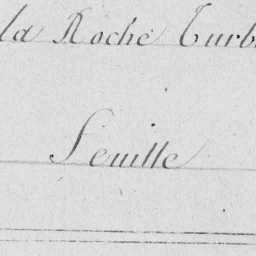 la Roche Turb
Feuille